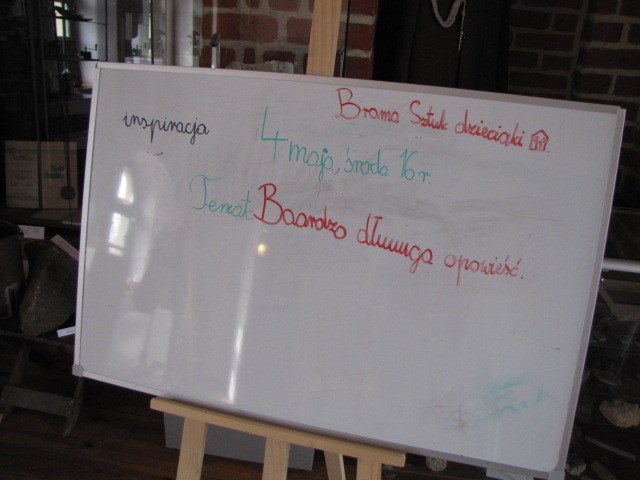 Brama Sztuk dzieciaki
inspiracja
4 maja, środa 16 r.
Temat: Baardzo dłuuuga opowieść.